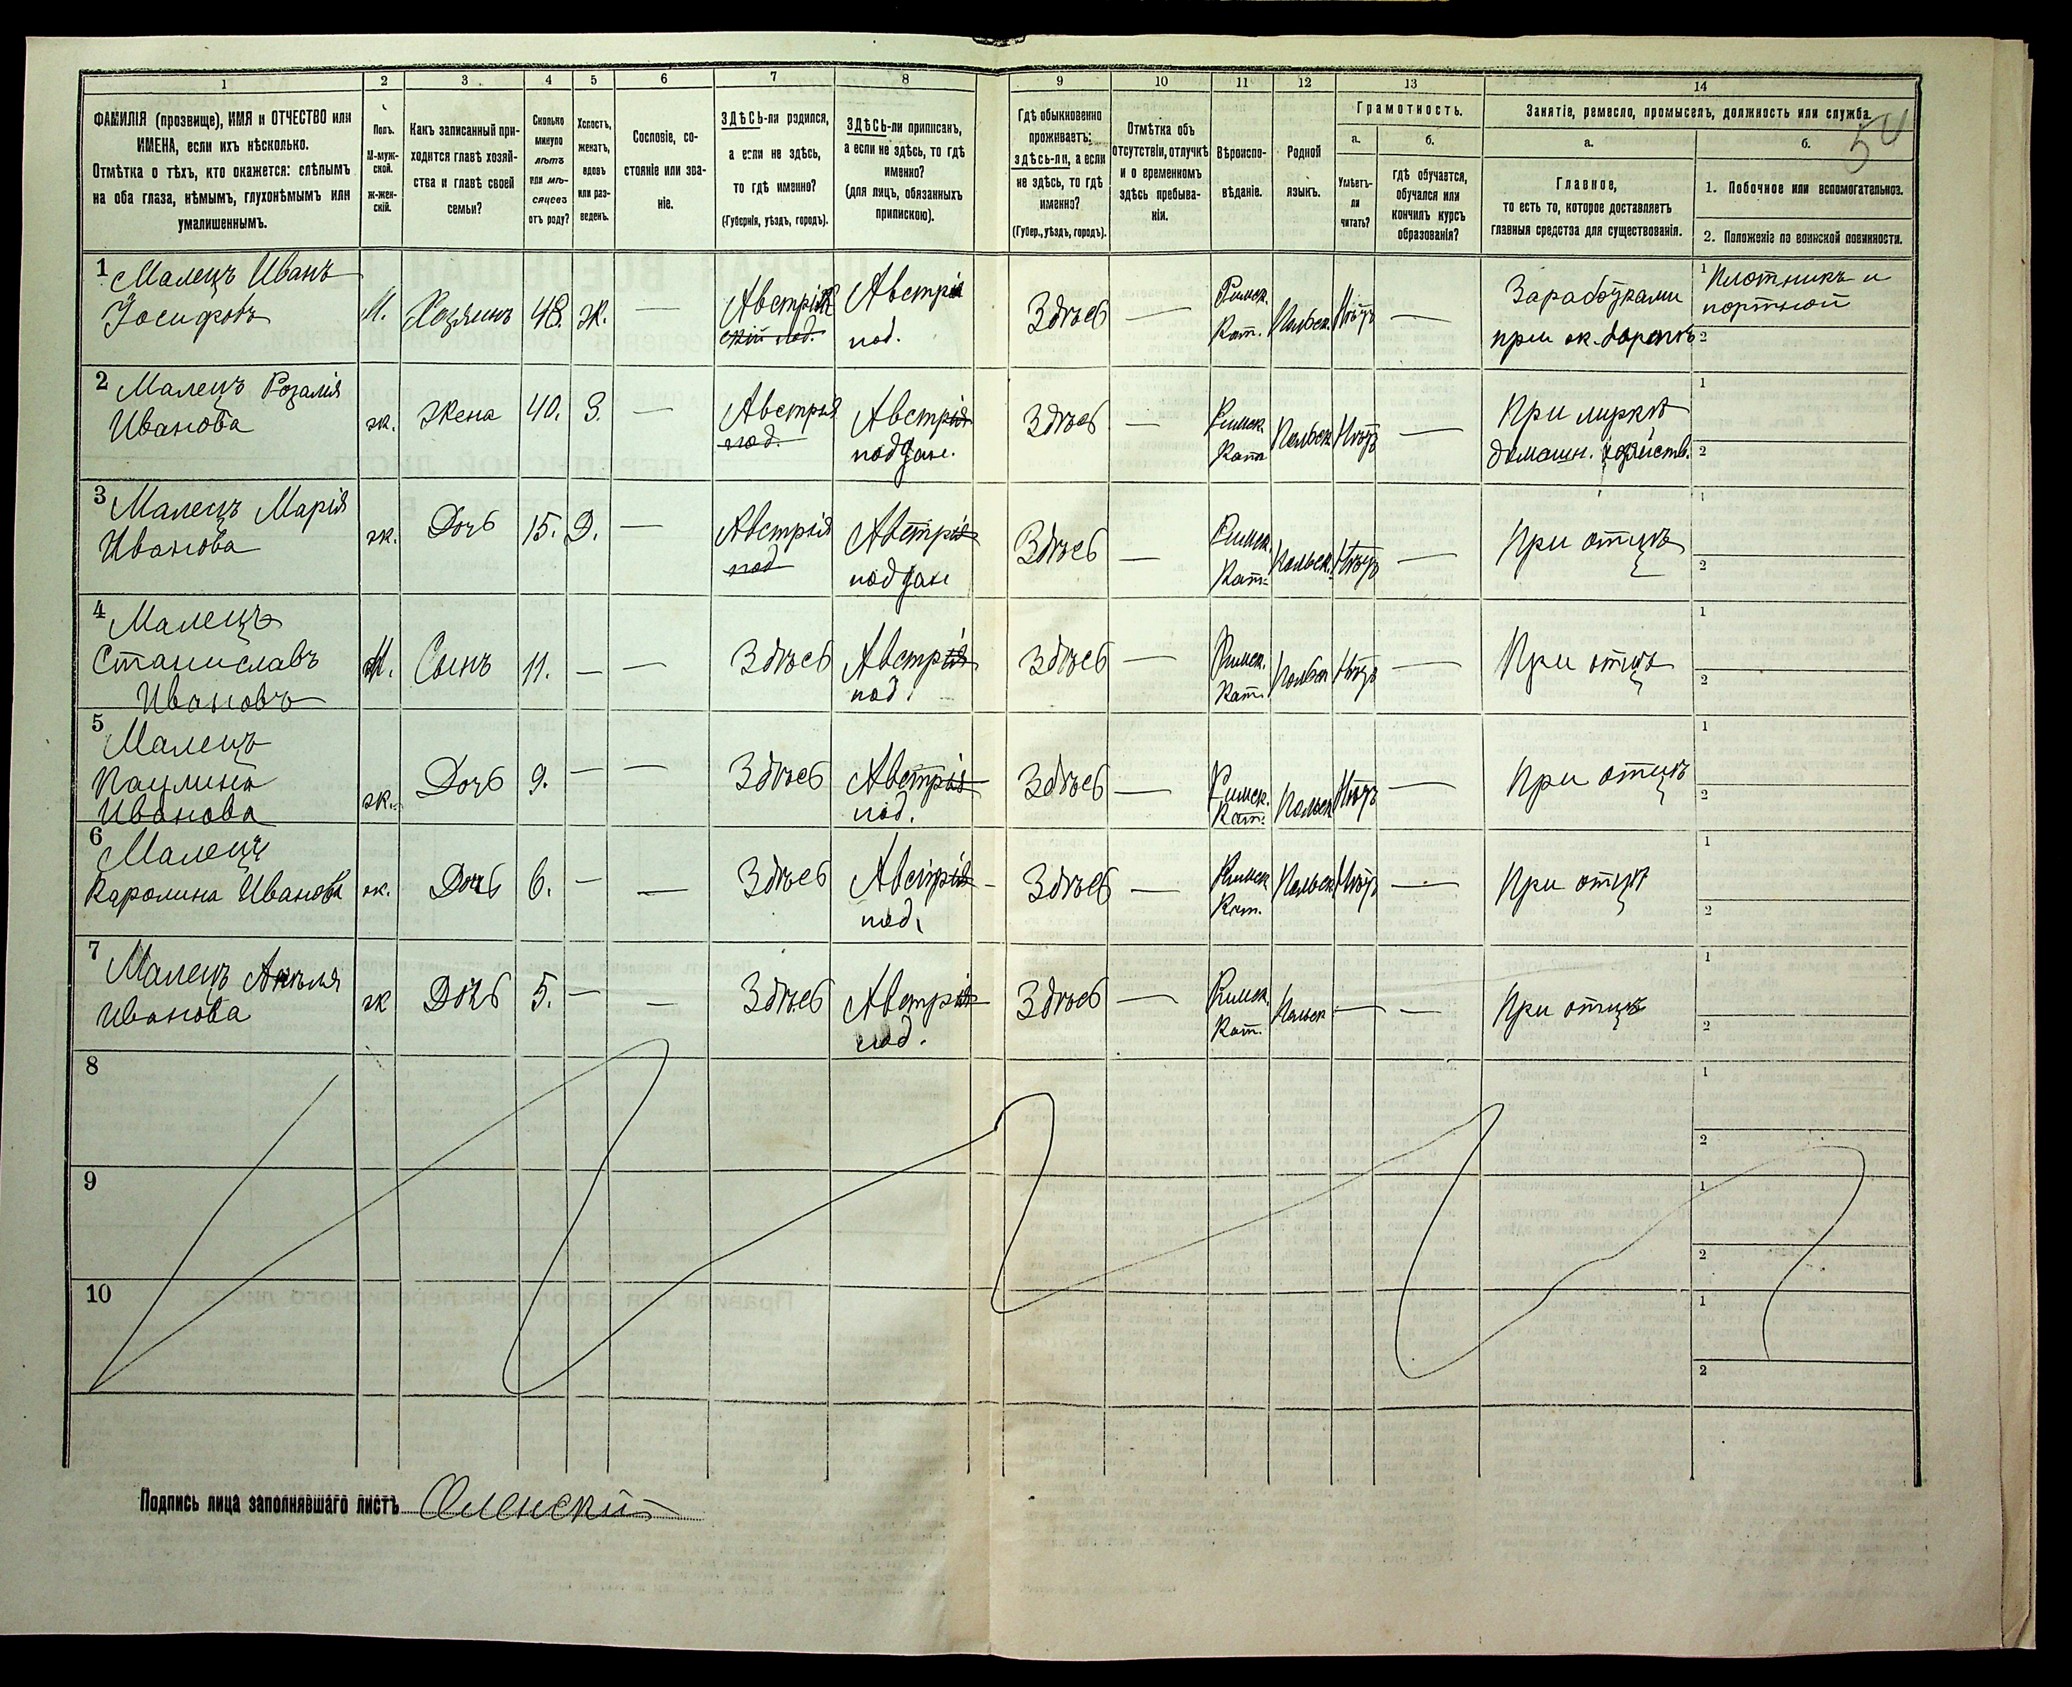 1 2 3 4 5 6 7 8 9 10 11 12 13 14
ФАМИЛІЯ (прозвище), ИМЯ и ОТЧЕСТВО или
ИМЕНА, если ихъ нѣсколько.
Отмѣтка о тѣхъ, кто окажется: слѣпымъ
на оба глаза, нѣмымъ, глухонѣмымъ или
умалишеннымъ.
Полъ.
М-муж-
ской.
ж-жен-
скій.
Какъ записанный при-
ходится главѣ хозяй-
ства и главѣ своей
семьи?
Сколько
минуло
лѣтъ
или мѣ-
сяцевъ
отъ роду?
Холостъ,
женатъ,
вдовъ
или раз-
веденъ.
Сословіе, со-
стояніе или зва-
ніе.
ЗДѢСЬ-ли родился,
а если не здѣсь,
то гдѣ именно?
(Губернія, уѣздъ, городъ).
ЗДѢСЬ-ли приписанъ,
а если не здѣсь, то гдѣ
именно?
(для лицъ, обязанныхъ
припискою).
Гдѣ обыкновенно
проживаетъ:
здѣсь-ли, а если
не здѣсь, то гдѣ
именно?
(Губер., уѣздъ, городъ).
Отмѣтка объ
отсутствіи, отлучкѣ
и о временномъ
здѣсь пребыва-
ніи.
Вѣроиспо-
вѣданіе.
Родной
языкъ.
Грамотность.
а.
Умѣетъ-
ли
читать?
б.
гдѣ обучается,
обучался или
кончилъ курсъ
образованія?
Занятіе, ремесло, промыселъ, должность или служба.
50
а.
Главное,
то есть то, которое доставляетъ
главныя средства для существованія.
б.
1. Побочное или вспомогательноэ.
2. Положеніе по воинской повинности.
1 Малецъ Иванъ
Іосифовъ
М. Хозяинъ 48. ж. —
Австрія
скій под.
Австрія
под.
Здѣсь —
Римск.
Кат.
Польск. Нѣтъ —
Заработками
при
1 Плотникъ и
портной
2
2 Малецъ Розалія
Иванова
ж. Жена 40. З. —
Австрія
под.
Австрія
поддан.
Здѣсь —
Римск.
Кат.
Польск. Нѣтъ —
При мужѣ
домашн. хозяйств.
1
2
3 Малецъ Марія
Иванова
ж. Дочь 15. Д. —
Австрія
под
Австрія
поддан
Здѣсь —
Римск.
Кат.
Польск. Нѣтъ —
При отцѣ
1
2
4 Малецъ
Станиславъ
Ивановъ
М. Сынъ 11. — —
Здѣсь
Австрія
под.
Здѣсь —
Римск.
Кат.
Польск Нѣтъ —
При отцѣ
1
2
5 Малецъ
Паулина
Иванова
ж. Дочь 9. — —
Здѣсь
Австрія
под.
Здѣсь —
Римск.
Кат.
Польск Нѣтъ —
При отцѣ
1
2
6 Малецъ
Каролина Иванова
ж. Дочь 6. — —
Здѣсь
Австрія
под.
Здѣсь —
Римск
Кат.
Польск Нѣтъ —
При отцѣ
1
2
7 Малецъ Анѣля
Иванова
ж Дочь 5. — —
Здѣсь
Австрія
под.
Здѣсь —
Римск.
Кат.
Польск — —
При отцѣ
1
2
8
1
2
9
1
2
10
1
2
Подпись лица заполнявшаго листъ